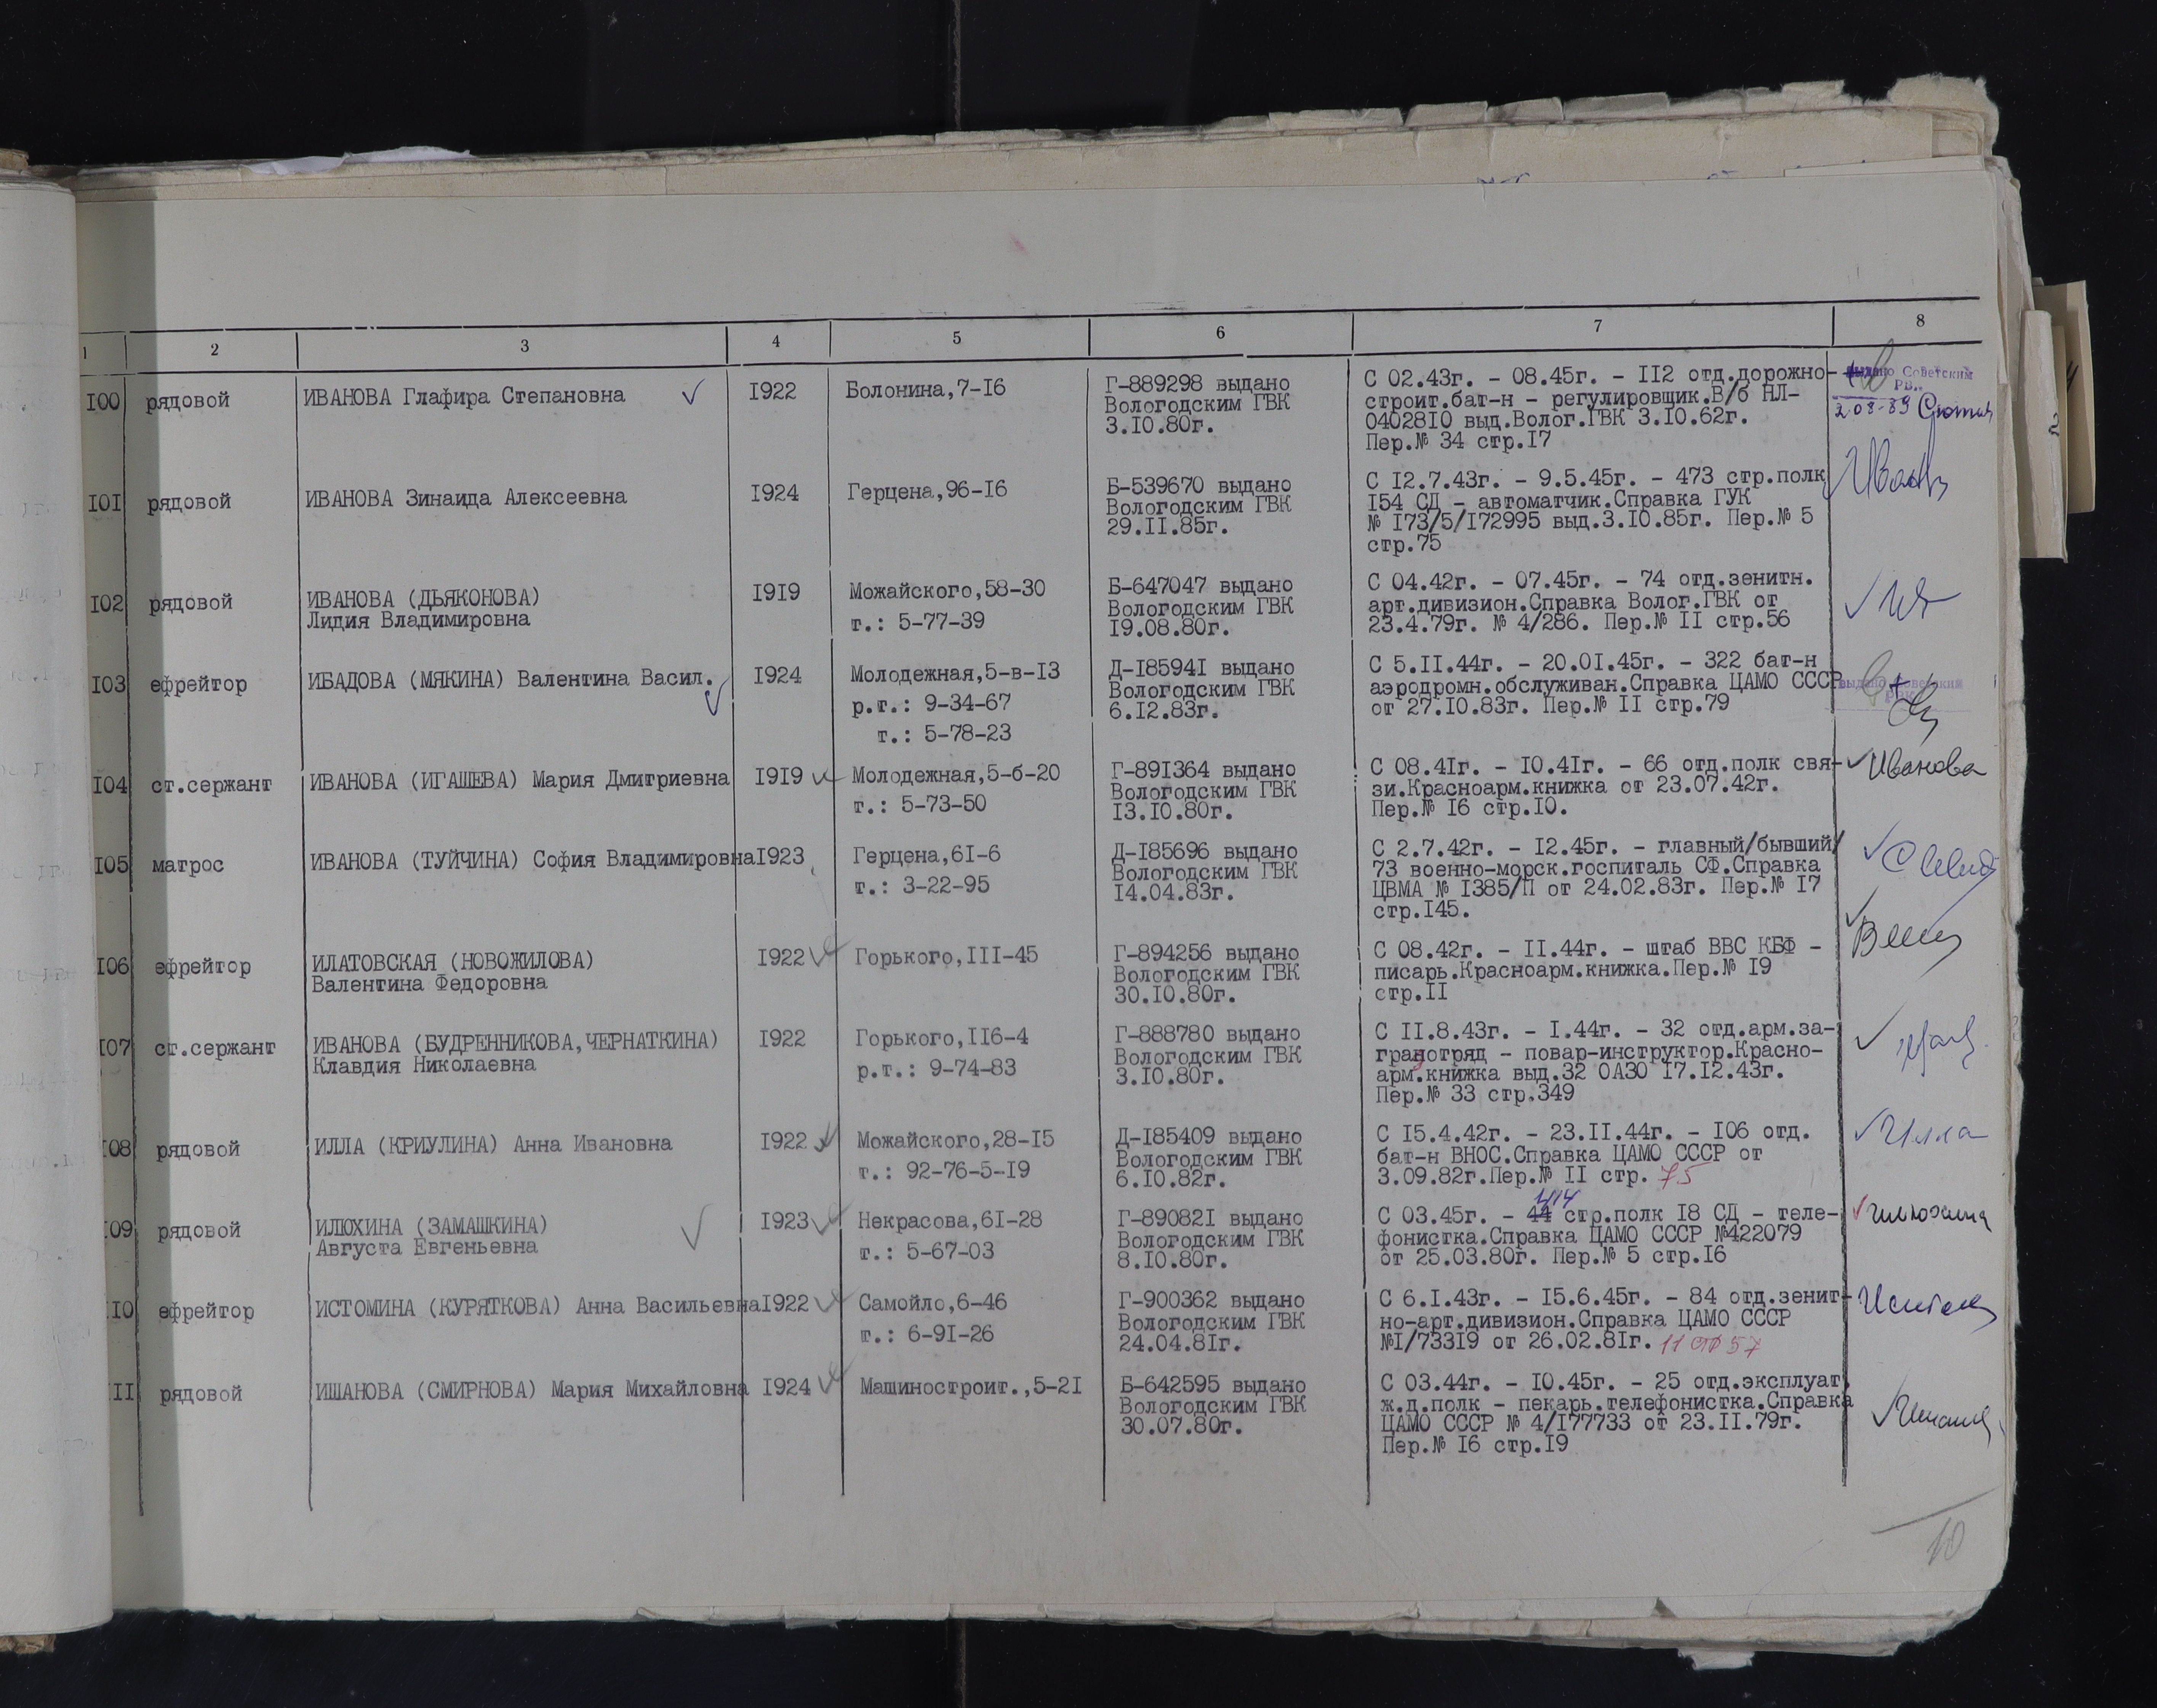 1 2 3 4 5 6 7 8
I00 рядовой ИВАНОВА Глафира Степановна I922 Болонина,7-I6 Г-889298 выдано С 02.43г. - 08.45г. - II2 отд.дорожно-
Вологодским ГВК строит.бат-н - регулировщик.В/б НЛ-
3.I0.80г. 04028I0 выд.Волог.ГВК 3.I0.62г.
Пер.№ 34 стр.I7
выдано Советским
РВК
I0I рядовой ИВАНОВА Зинаида Алексеевна I924 Герцена,96-I6 Б-539670 выдано С I2.7.43г. - 9.5.45г. - 473 стр.полк
Вологодским ГВК I54 СД - автоматчик.Справка ГУК
29.II.85г. № I73/5/I72995 выд.3.I0.85г. Пер.№ 5
стр.75
I02 рядовой ИВАНОВА (ДЬЯКОНОВА) I9I9 Можайского,58-30 Б-647047 выдано С 04.42г. - 07.45г. - 74 отд.зенитн.
Лидия Владимировна т.: 5-77-39 Вологодским ГВК арт.дивизион.Справка Волог.ГВК от
I9.08.80г. 23.4.79г. № 4/286. Пер.№ II стр.56
I03 ефрейтор ИБАДОВА (МЯКИНА) Валентина Васил. I924 Молодежная,5-в-I3 Д-I8594I выдано С 5.II.44г. - 20.0I.45г. - 322 бат-н
р.т.: 9-34-67 Вологодским ГВК аэродромн.обслуживан.Справка ЦАМО СССР
т.: 5-78-23 6.I2.83г. от 27.I0.83г. Пер.№ II стр.79
выдано Советским
РВК
I04 ст.сержант ИВАНОВА (ИГАШЕВА) Мария Дмитриевна I9I9 Молодежная,5-б-20 Г-89I364 выдано С 08.4Iг. - I0.4Iг. - 66 отд.полк свя- Иванова
т.: 5-73-50 Вологодским ГВК зи.Красноарм.книжка от 23.07.42г.
I3.I0.80г. Пер.№ I6 стр.I0.
I05 матрос ИВАНОВА (ТУЙЧИНА) София Владимировна I923 Герцена,6I-6 Д-I85696 выдано С 2.7.42г. - I2.45г. - главный/бывший/
т.: 3-22-95 Вологодским ГВК 73 военно-морск.госпиталь СФ.Справка
I4.04.83г. ЦВМА № I385/П от 24.02.83г. Пер.№ I7
стр.I45.
I06 ефрейтор ИЛАТОВСКАЯ (НОВОЖИЛОВА) I922 Горького,III-45 Г-894256 выдано С 08.42г. - II.44г. - штаб ВВС КБФ -
Валентина Федоровна Вологодским ГВК писарь.Красноарм.книжка.Пер.№ I9
30.I0.80г. стр.II
I07 ст.сержант ИВАНОВА (БУДРЕННИКОВА,ЧЕРНАТКИНА) I922 Горького,II6-4 Г-888780 выдано С II.8.43г. - I.44г. - 32 отд.арм.за-
Клавдия Николаевна р.т.: 9-74-83 Вологодским ГВК градотряд - повар-инструктор.Красно-
3.I0.80г. арм.книжка выд.32 ОАЗО I7.I2.43г.
Пер.№ 33 стр.349
I08 рядовой ИЛЛА (КРИУЛИНА) Анна Ивановна I922 Можайского,28-I5 Д-I85409 выдано С I5.4.42г. - 23.II.44г. - I06 отд. Илла
т.: 92-76-5-I9 Вологодским ГВК бат-н ВНОС.Справка ЦАМО СССР от
6.I0.82г. 3.09.82г.Пер.№ II стр. 75
414
I09 рядовой ИЛЮХИНА (ЗАМАШКИНА) I923 Некрасова,6I-28 Г-89082I выдано С 03.45г. - 44 стр.полк I8 СД - теле- Илюхина
Августа Евгеньевна т.: 5-67-03 Вологодским ГВК фонистка.Справка ЦАМО СССР №422079
8.I0.80г. от 25.03.80г. Пер.№ 5 стр.I6
II0 ефрейтор ИСТОМИНА (КУРЯТКОВА) Анна Васильевна I922 Самойло,6-46 Г-900362 выдано С 6.I.43г. - I5.6.45г. - 84 отд.зенит-
т.: 6-9I-26 Вологодским ГВК но-арт.дивизион.Справка ЦАМО СССР
24.04.8Iг. №I/733I9 от 26.02.8Iг. 11 стр 57
III рядовой ИШАНОВА (СМИРНОВА) Мария Михайловна I924 Машиностроит.,5-2I Б-642595 выдано С 03.44г. - I0.45г. - 25 отд.эксплуат.
Вологодским ГВК ж.д.полк - пекарь.телефонистка.Справка
30.07.80г. ЦАМО СССР № 4/I77733 от 23.II.79г.
Пер.№ I6 стр.I9
10